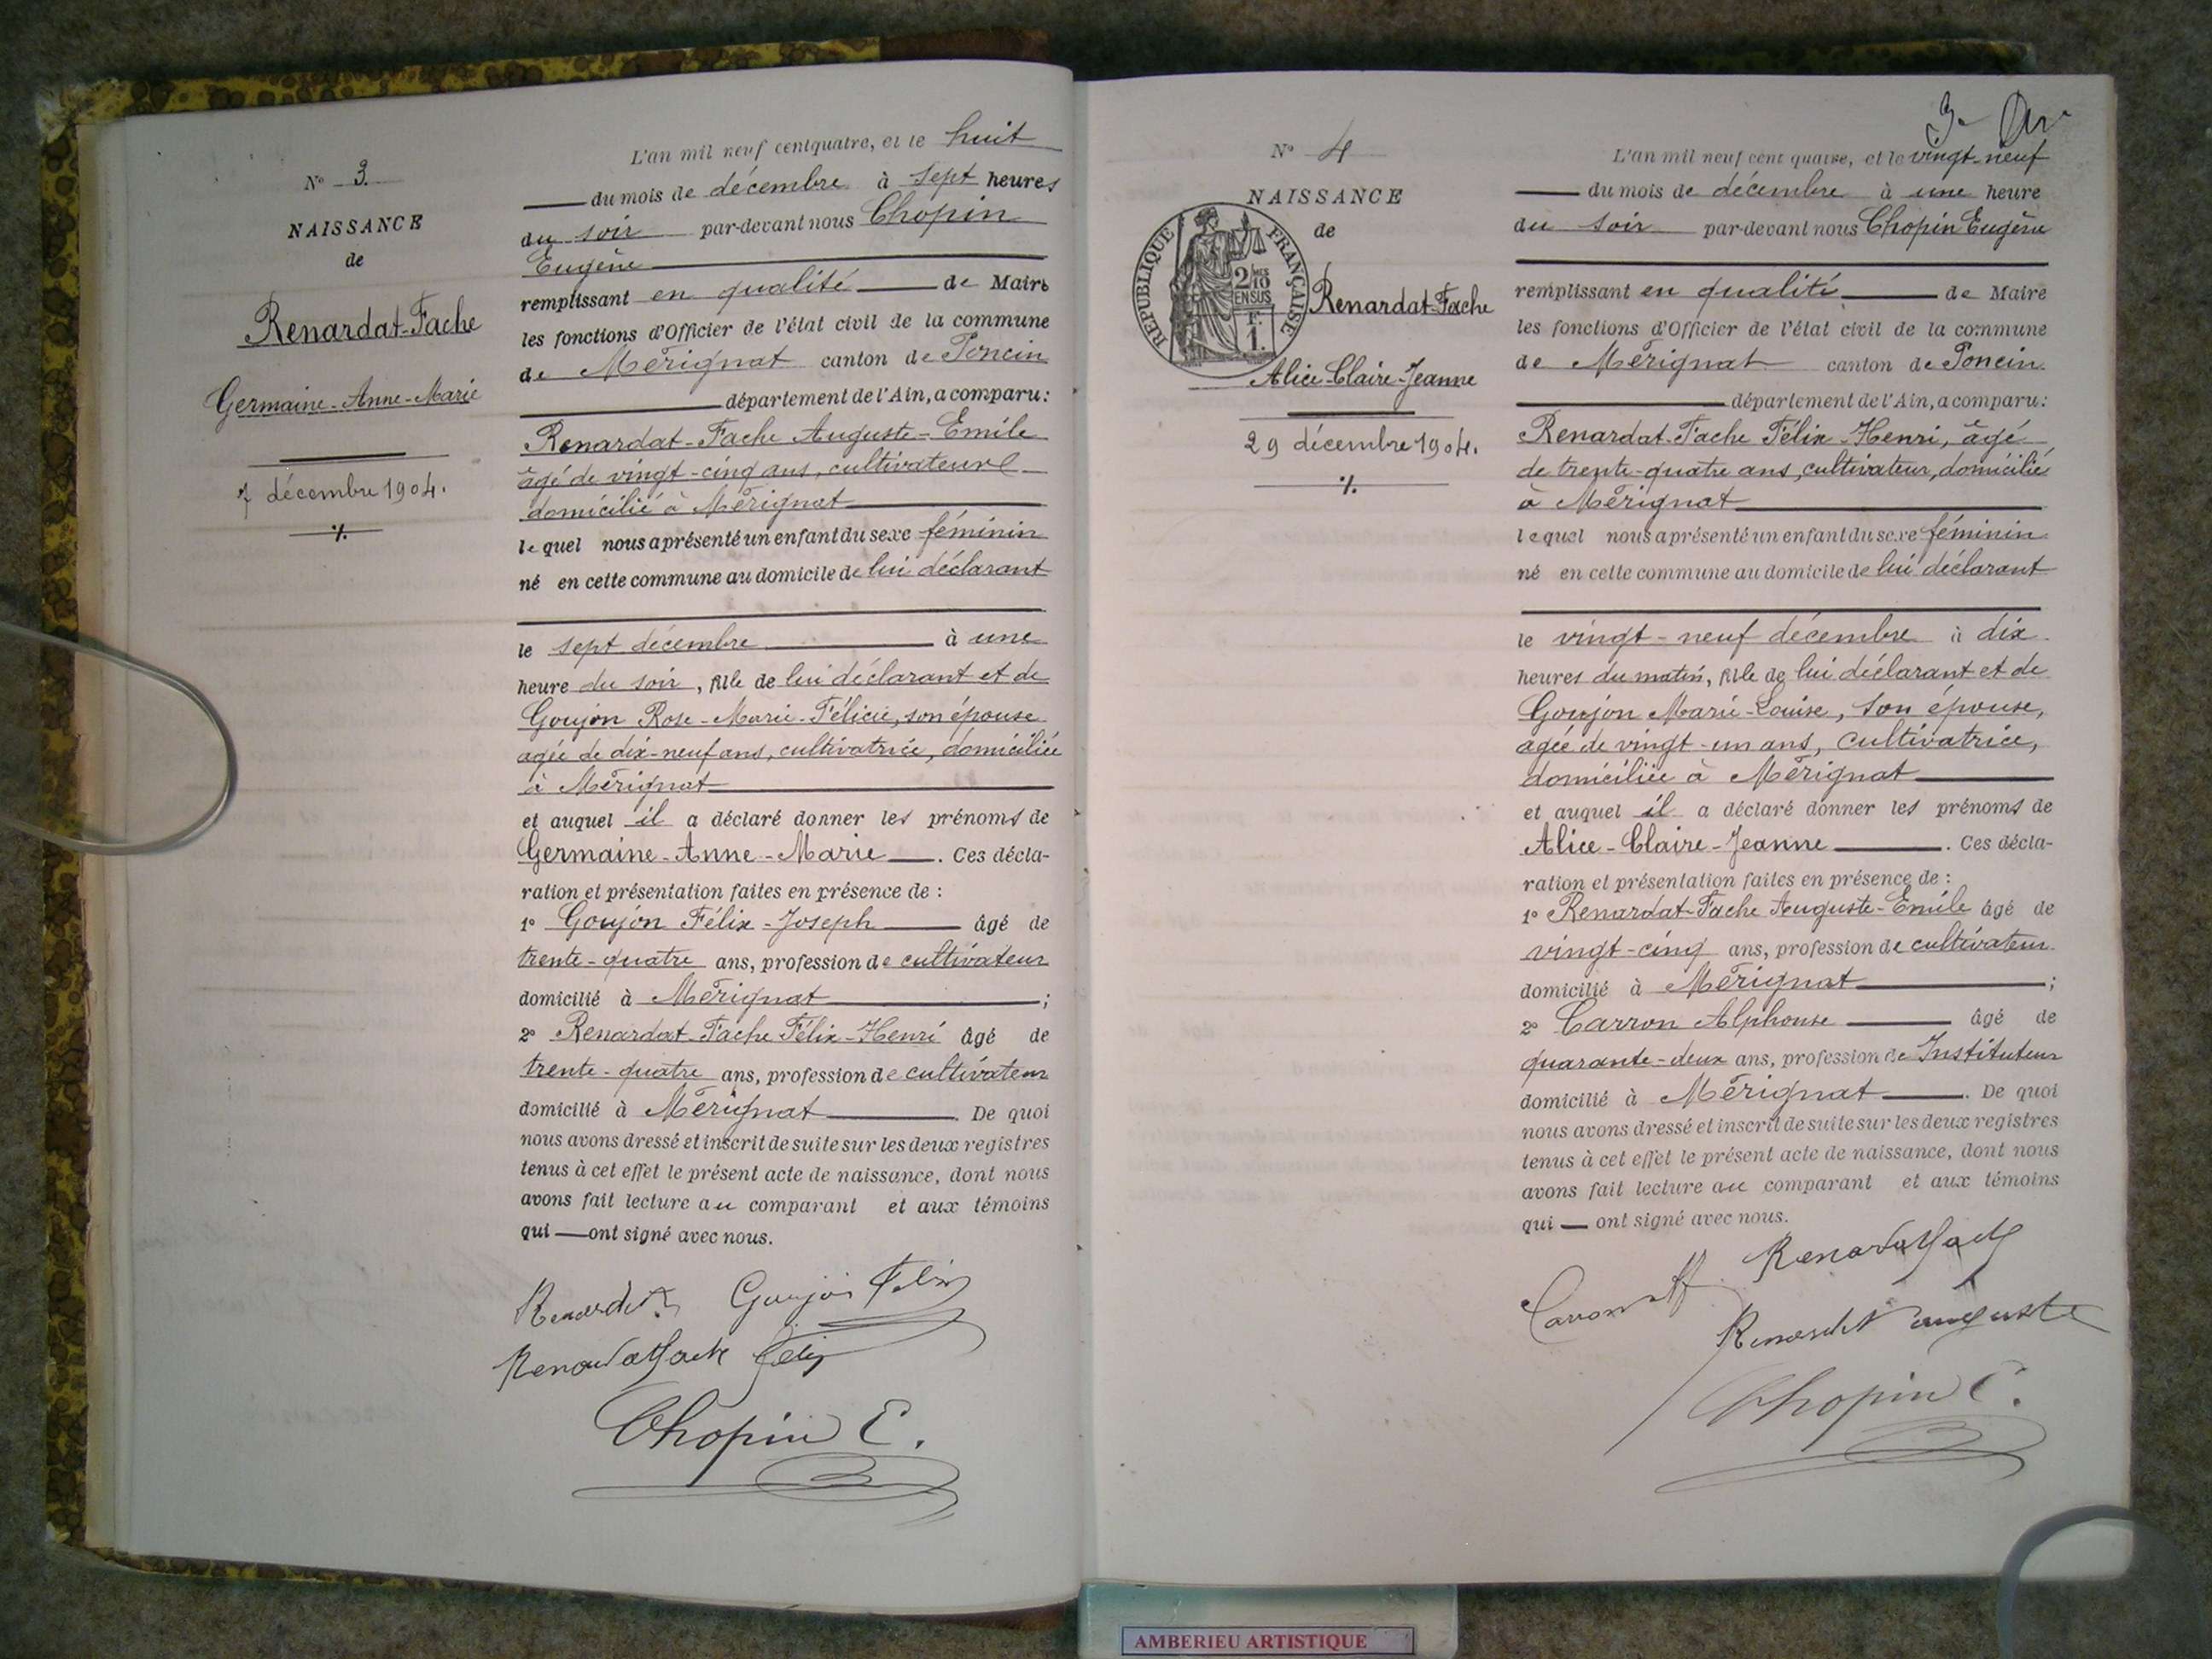 N° 3.
NAISSANCE
de
Renardat-Fache
Germaine-Anne-Marie
7 décembre 1904.
L'an mil neuf cent quatre, et le huit
du mois de décembre à sept heures
du soir par-devant nous Chopin
Eugène
remplissant en qualité de Maire
les fonctions d'Officier de l'état civil de la commune
de Mérignat canton de Poncin
département de l'Ain, a comparu:
Renardat-Fache Auguste-Emile
âgé de vingt-cinq ans, cultivateur
domicilié à Mérignat
lequel nous a présenté un enfant du sexe féminin
né en cette commune au domicile de lui déclarant
le sept décembre à une
heure du soir, fille de lui déclarant et de
Goujon Rose-Marie-Félicie, son épouse
agée de dix-neuf ans, cultivatrice, domiciliée
à Mérignat
et auquel il a déclaré donner les prénoms de
Germaine-Anne-Marie. Ces décla-
ration et présentation faites en présence de :
1° Goujon Félix-Joseph âgé de
trente-quatre ans, profession de cultivateur
domicilié à Mérignat ;
2° Renardat-Fache Félix-Henri âgé de
trente-quatre ans, profession de cultivateur
domicilié à Mérignat. De quoi
nous avons dressé et inscrit de suite sur les deux registres
tenus à cet effet le présent acte de naissance, dont nous
avons fait lecture au comparant et aux témoins
qui ont signé avec nous.
Goujon Félix
Chopin E.
N° 4
NAISSANCE
de
REPUBLIQUE FRANÇAISE
2/10 EN SUS
Renardat-Fache
Alice-Claire-Jeanne
29 décembre 1904.
L'an mil neuf cent quatre, et le vingt-neuf
du mois de décembre à une heure
du soir par-devant nous Chopin Eugène
remplissant en qualité de Maire
les fonctions d'Officier de l'état civil de la commune
de Mérignat canton de Poncin.
département de l'Ain, a comparu:
Renardat-Fache Félix-Henri, âgé
de trente-quatre ans, cultivateur, domicilié
à Mérignat
lequel nous a présenté un enfant du sexe féminin
né en cette commune au domicile de lui déclarant
le vingt-neuf décembre à dix
heures du matin, fille de lui déclarant et de
Goujon Marie-Louise, son épouse,
agée de vingt-un ans, cultivatrice,
domiciliée à Mérignat
et auquel il a déclaré donner les prénoms de
Alice-Claire-Jeanne. Ces décla-
ration et présentation faites en présence de :
1° Renardat-Fache Auguste-Emile âgé de
vingt-cinq ans, profession de cultivateur
domicilié à Mérignat ;
2° Carron Alphonse âgé de
quarante-deux ans, profession de Instituteur
domicilié à Mérignat. De quoi
nous avons dressé et inscrit de suite sur les deux registres
tenus à cet effet le présent acte de naissance, dont nous
avons fait lecture au comparant et aux témoins
qui ont signé avec nous.
Chopin E.
AMBERIEU ARTISTIQUE